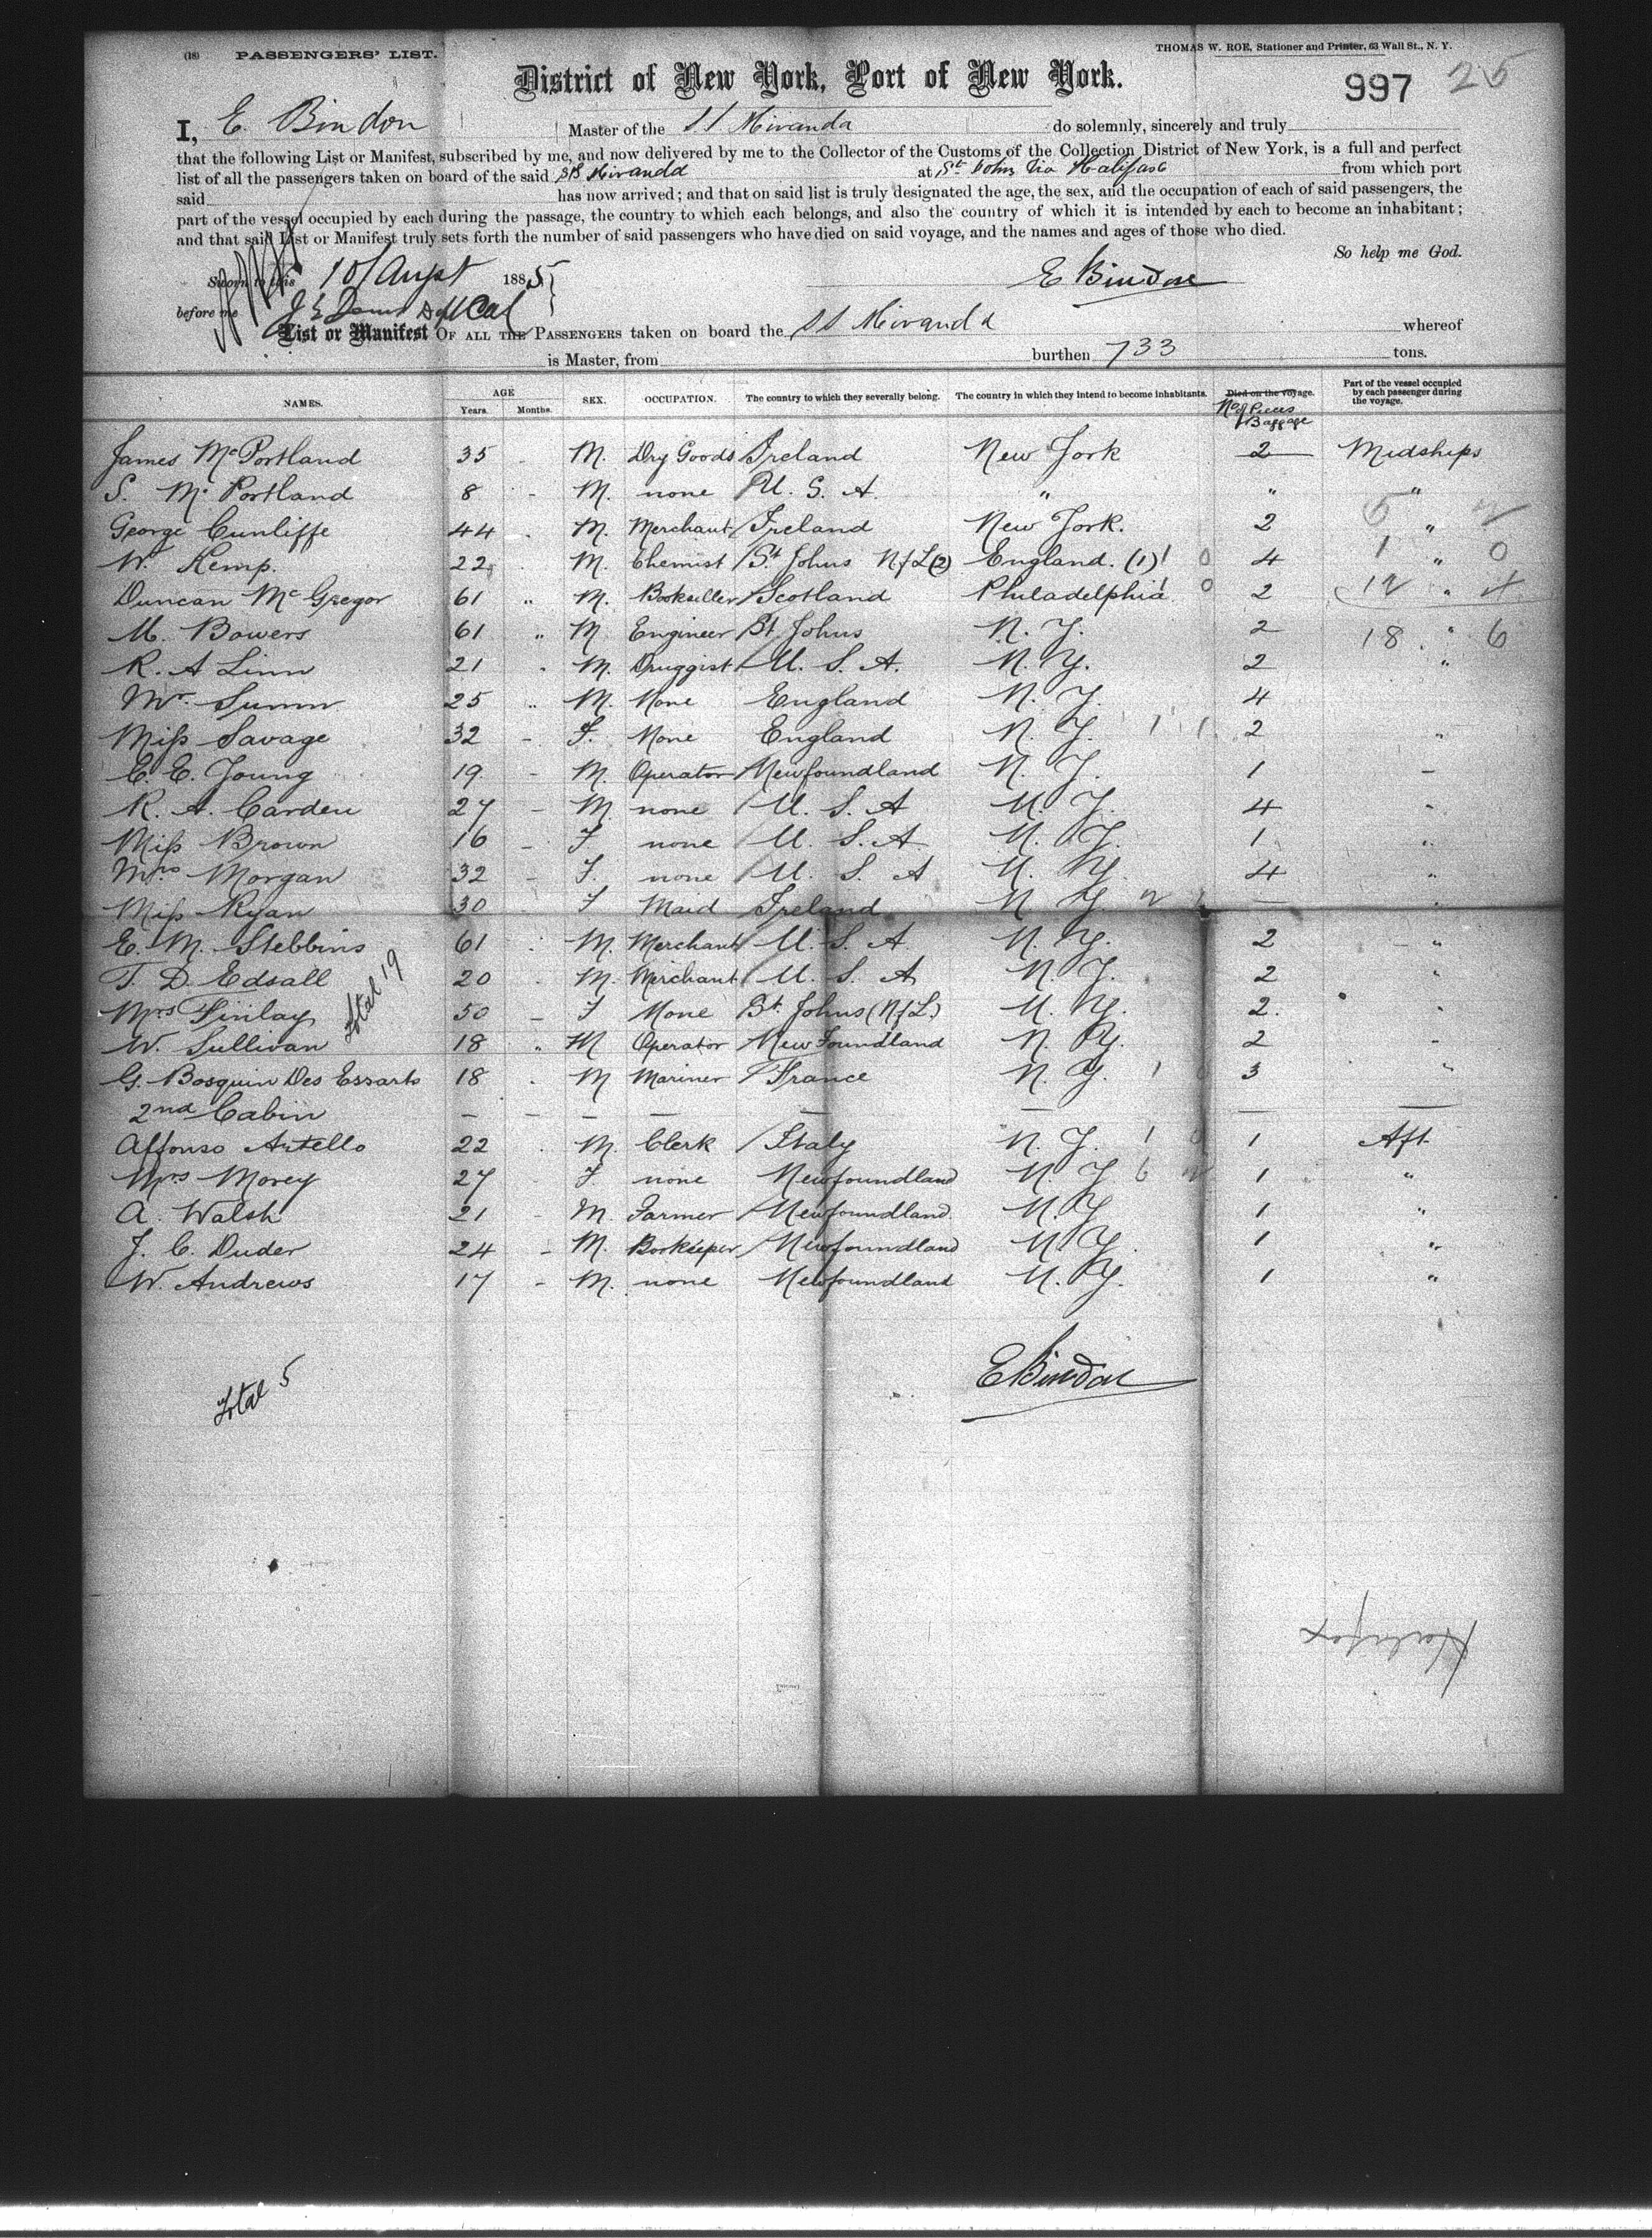 (18) PASSENGERS' LIST. THOMAS W. ROE, Stationer and Printer, 63 Wall St., N. Y.
District of New York, Port of New York. 997 25
I, E. Bindon Master of the SS Miranda do solemnly, sincerely and truly
that the following List or Manifest, subscribed by me, and now delivered by me to the Collector of the Customs of the Collection District of New York, is a full and perfect
list of all the passengers taken on board of the said SS Miranda at St. Johns Via Halifax from which port
said has now arrived; and that on said list is truly designated the age, the sex, and the occupation of each of said passengers, the
part of the vessel occupied by each during the passage, the country to which each belongs, and also the country of which it is intended by each to become an inhabitant;
and that said List or Manifest truly sets forth the number of said passengers who have died on said voyage, and the names and ages of those who died.
So help me God.
Sworn to this 10/August 1885 E Bindon
before me
List or Manifest OF ALL THE PASSENGERS taken on board the SS Miranda whereof
is Master, from burthen 733 tons.
NAMES. AGE Years. Months. SEX. OCCUPATION. The country to which they severally belong. The country in which they intend to become inhabitants. Died on the voyage. Part of the vessel occupied by each passenger during the voyage.
No of Pieces Baggage
James McPortland 35 M. Dry Goods Ireland New York 2 Midships
S. Mc Portland 8 - M. none U. S. A. " " "
George Cunliffe 44 . M. Merchant Ireland New York. 2 " 5
W. Kemp. 22 . M. Chemist St. Johns N/L (2) England. (1) 0 4 1 " 0
Duncan McGregor 61 " M. Bookseller Scotland Philadelphia 0 2 12 "
M. Bowers 61 " M Engineer St. Johns N. Y. 2 18 " 6
R. A Linn 21 . M. Druggist U. S. A. N. Y. 2 "
Mr. Sumn 25 " M. None England N. Y. 4
Miss Savage 32 - F. None England N. Y. 1 1 2 "
E. E. Young 19 - M. Operator Newfoundland N. Y. 1 -
R. A. Carden 27 - M none U. S. A N. Y. 4 "
Miss Brown 16 - F none U. S. A N. Y. 1 "
Mrs Morgan 32 - F. none U. S. A N. Y. 4 "
Miss Ryan 30 - F Maid Ireland N. Y. - "
E. M. Stebbins 61 . M. Merchant U. S. A N. Y. 2 "
T. D. Edsall 20 . M. Merchant U. S. A N. Y. 2 "
Mrs Finlay 50 - F None St. Johns (N/L.) N. Y. 2. "
W. Sullivan 18 " M Operator Newfoundland N. Y. 2 "
Total 19
G. Bosquin Des Essarts 18 . M Mariner France N. Y. 1 3 "
2nd Cabin - - - - - - - -
Affonso Artello 22 . M. Clerk Italy N. Y. 1 1 Aft.
Mrs Morey 27 - F. none Newfoundland N. Y 6 1 "
A. Walsh 21 - M. Farmer Newfoundland N. Y 1 "
J. C. Duder 24 - M. Bookeeper Newfoundland N. Y. 1 "
W. Andrews 17 - M. none Newfoundland N. Y. 1 "
E Bindon
Total 5
Halifax